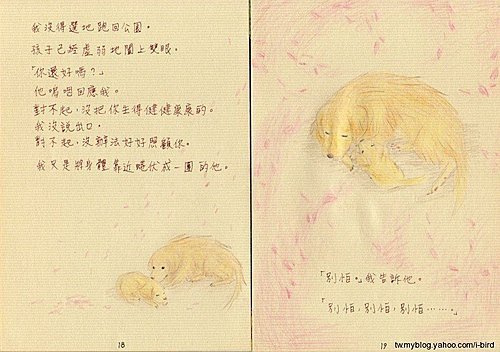 我沒得選地跑回公園。
孩子已經虛弱地闔上雙眼。
「你還好嗎？」
他嗚咽回應我。
對不起，沒把你生得健健康康的。
我沒說出口。
對不起，沒辦法好好照顧你。
我只是將身體靠近蜷伏成一團的他。
18
「別怕。」我告訴他。
「別怕，別怕，別怕……。」
19
twmyblog.yahoo.com/i-bird